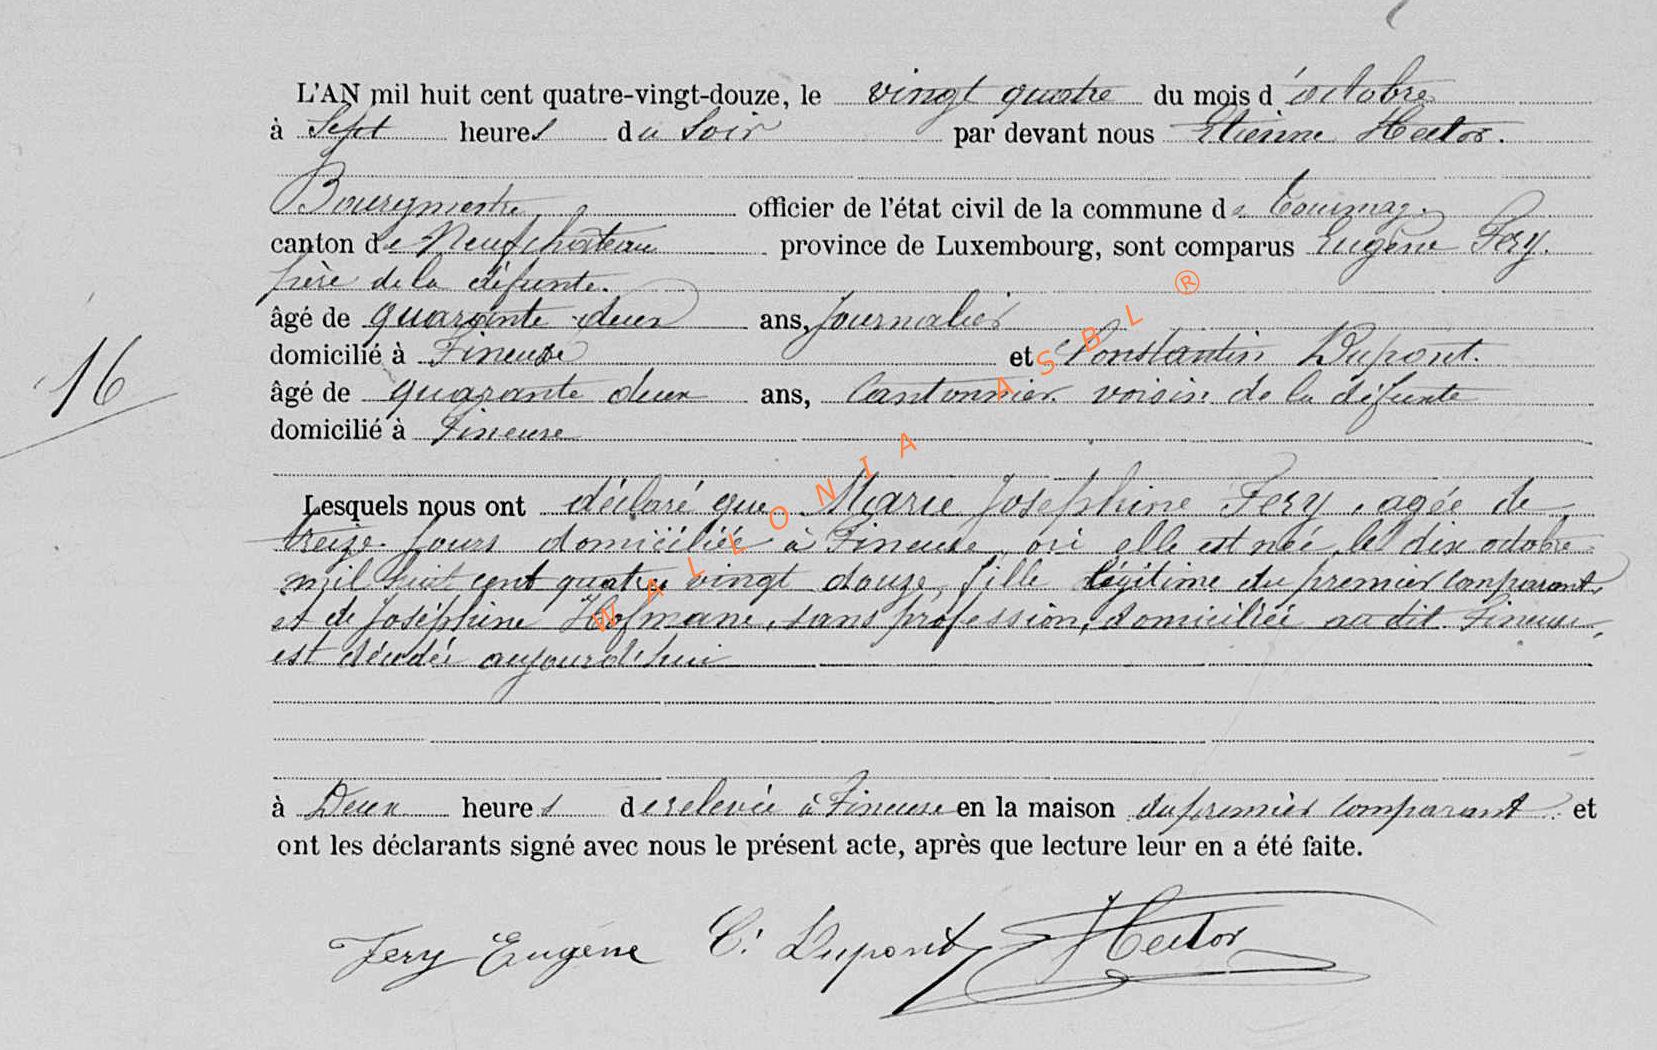 L'AN mil huit cent quatre-vingt-douze, le vingt quatre du mois d'octobre
à Sept heures du Soir par devant nous Etienne Hector.
Bourgmestre officier de l'état civil de la commune de Tournay.
canton de Neufchateau province de Luxembourg, sont comparus Eugène Fery.
père de la défunte.
âgé de quarante deux ans, Journalier
domicilié à Fineuse et Constantin Dupont.
16
âgé de quarante deux ans, Cantonnier. voisin de la défunte
domicilié à Fineuse
Lesquels nous ont déclaré que Marie Joséphine Fery, agée de
treize jours domiciliée à Fineuse, où elle est née, le dix octobre
mil huit cent quatre vingt douze, fille légitime du premier comparant,
et de Joséphine Hofmane, sans profession, domiciliée au dit Fineuse,
est décédée aujourd'hui
à Deux heures de relevée à Fineuse en la maison du premier comparant et
ont les déclarants signé avec nous le présent acte, après que lecture leur en a été faite.
Fery Eugène C. Dupont Hector
WALLONIA ASBL ®